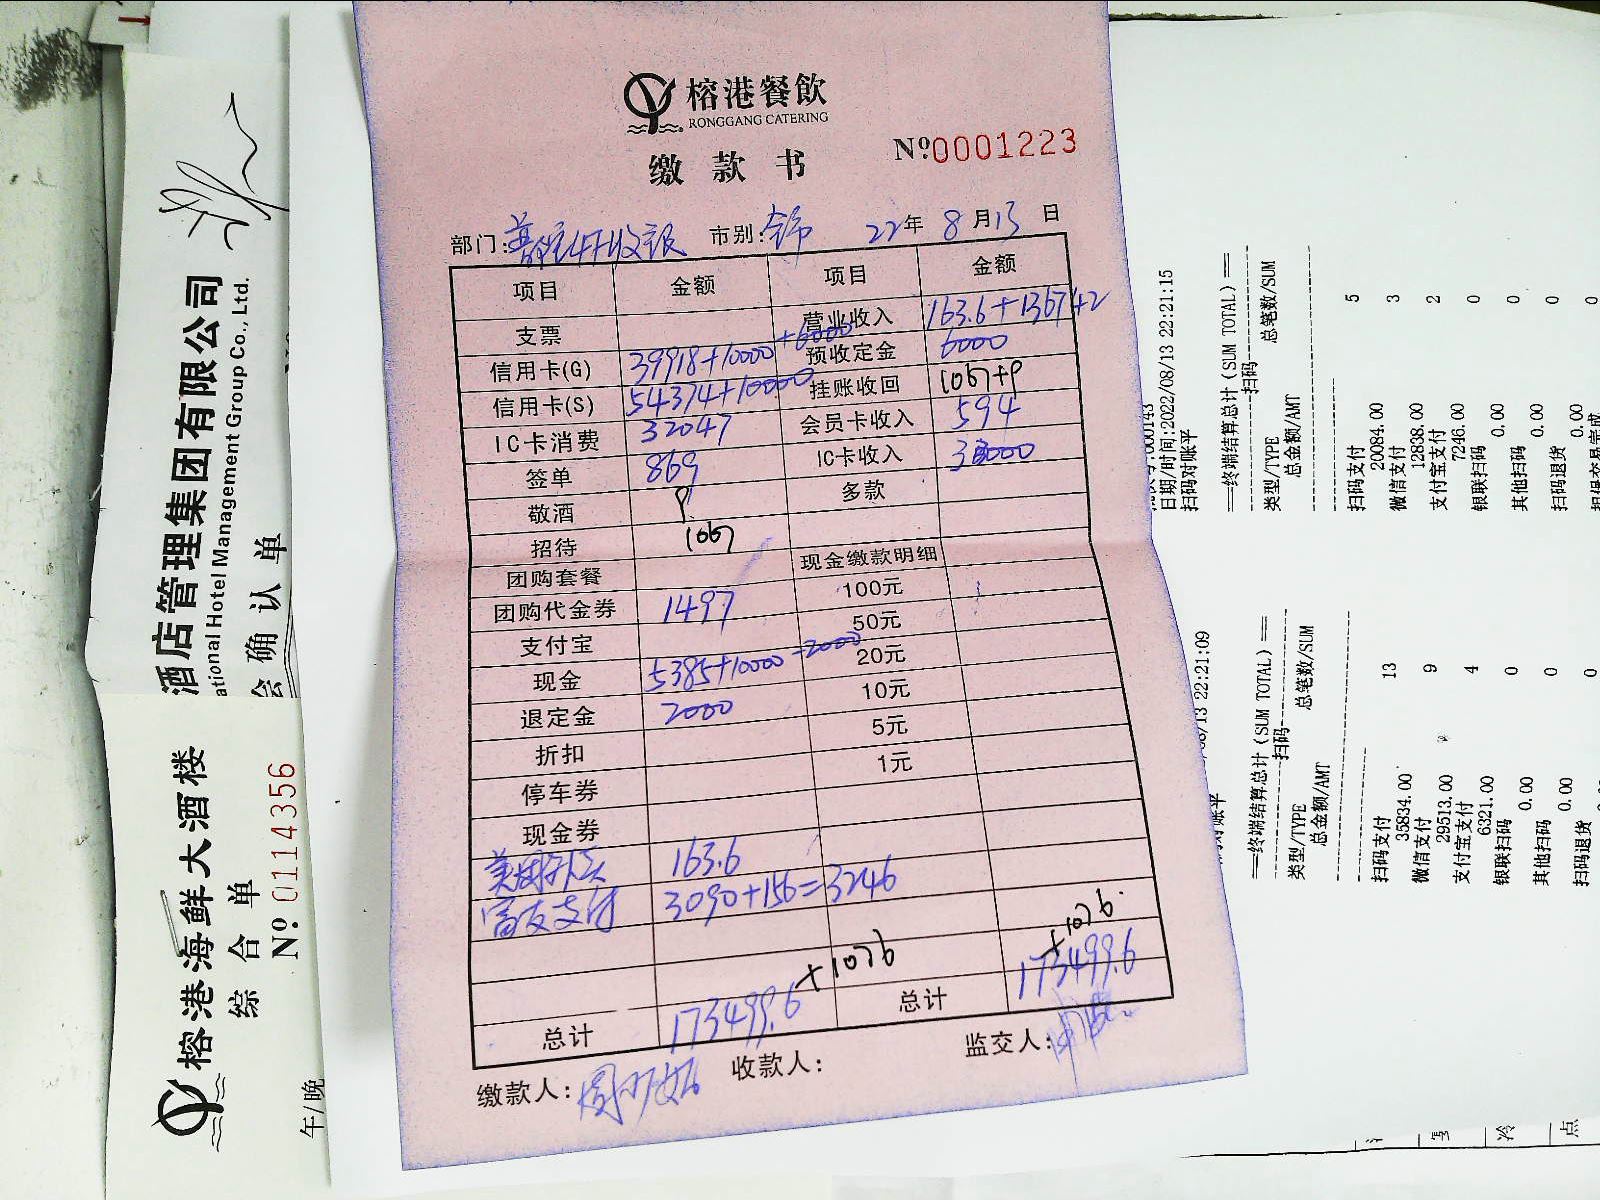 榕港餐飲
RONGGANG CATERING
缴款书
Nº0001223
部门: 4F收银 市别: 22年 8月13日
项目 金额 项目 金额
支票 营业收入 163.6+136742
信用卡(G) 39918+10000+6000 预收定金 6000
信用卡(S) 54374+10000 挂账收回
IC卡消费 32047 会员卡收入 594
签单 869 IC卡收入
敬酒 9 多款
招待 1067
团购套餐 现金缴款明细
团购代金券 1497 100元
支付宝 50元
现金 5385+10000-2000 20元
退定金 2000 10元
折扣 5元
停车券 1元
现金券
163.6
富友支付 3090+156=3246
总计 173499.6+1076 总计 173499.6+1076
缴款人: 收款人: 监交人:
酒店管理集团有限公司
ational Hotel Management Group Co., Ltd.
会确认单
榕港海鲜大酒楼
综合单
Nº 0114356
午/晚
日期/时间:2022/08/13 22:21:15
扫码对账平
==终端结算总计(SUM TOTAL)==
扫码
类型/TYPE 总笔数/SUM
总金额/AMT
扫码支付 5
20084.00
微信支付 3
12838.00
支付宝支付 2
7246.00
银联扫码 0
0.00
其他扫码 0
0.00
扫码退货 0
0.00
/13 22:21:09
==终端结算总计(SUM TOTAL)==
扫码
类型/TYPE 总笔数/SUM
总金额/AMT
扫码支付 13
35834.00
微信支付 9
29513.00
支付宝支付 4
6321.00
银联扫码 0
0.00
其他扫码 0
0.00
扫码退货 0